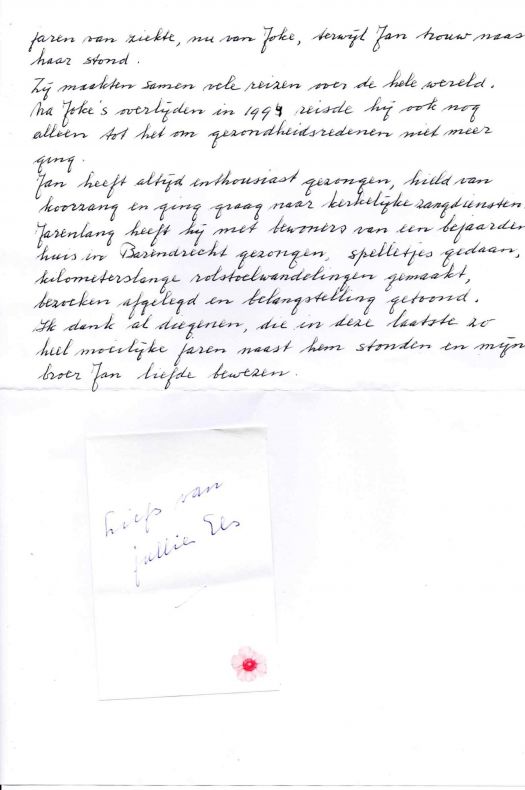 jaren van ziekte, nu van Joke, terwijl Jan trouw naas
haar stond.
Zij maakten samen vele reizen over de hele wereld.
Na Joke's overlijden in 1994 reisde hij ook nog
alleen tot het om gezondheidsredenen niet meer
ging.
Jan heeft altijd enthousiast gezongen, hield van
koorzang en ging graag naar kerkelijke zangdiensten
Jarenlang heeft hij met bewoners van een bejaarden
huis in Barendrecht gezongen, spelletjes gedaan,
kilometerslange rolstoelwandelingen gemaakt,
bezoeken afgelegd en belangstelling getoond.
Ik dank al diegenen, die in deze laatste zo
heel moeilijke jaren naast hem stonden en mijn
broer Jan liefde bewezen.
Liefs van
jullie Els